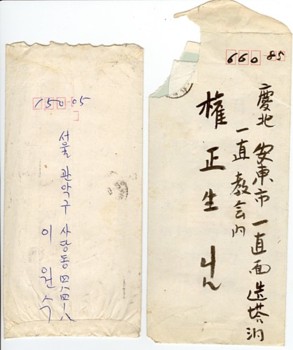 150 05
서울 관악구 사당동
이 원 수
660 85
慶北 安東市 一直面 造塔洞
一直教会内
權正生